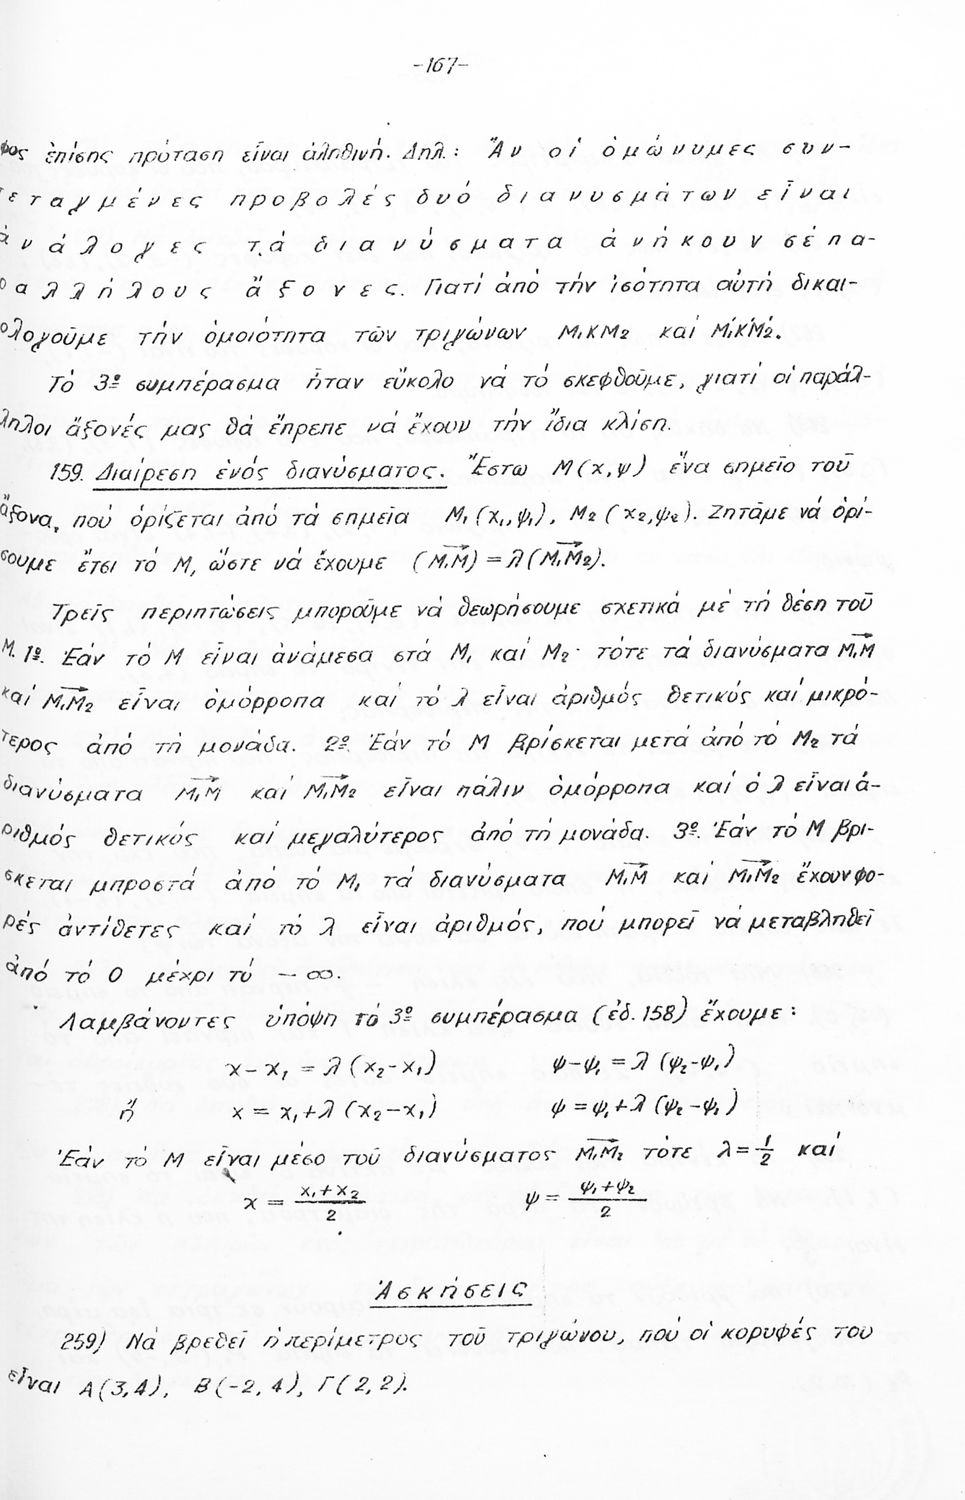 -167-
φος ἐπίσης πρόταση εἶναι ἀληθινή. Δηλ.: Ἄν οἱ ὁμώνυμες συν-
τεταγμένες προβολές δυό διανυσμάτων εἶναι
ἀνάλογες τά διανύσματα ἀνήκουν σέ πα-
ραλλήλους ἄξονες. Γιατί ἀπό τήν ἰσότητα αὐτή δικαι-
ολογοῦμε τήν ὁμοιότητα τῶν τριγώνων Μ₁ΚΜ₂ καί Μ₁́Κ́Μ₂́.
Τό 3º συμπέρασμα ἦταν εὔκολο νά τό σκεφθοῦμε, γιατί οἱ παράλ-
ληλοι ἄξονές μας θά ἔπρεπε νά ἔχουν τήν ἴδια κλίση.
159. Διαίρεση ἑνός διανύσματος. Ἔστω Μ(χ,ψ) ἕνα σημεῖο τοῦ
ἄξονα, πού ὁρίζεται ἀπό τά σημεῖα Μ₁(χ₁,ψ₁), Μ₂(χ₂,ψ₂). Ζητᾶμε νά ὁρί-
σουμε ἔτσι τό Μ, ὥστε νά ἔχουμε (Μ₁Μ⃗) = λ(Μ₁Μ⃗₂).
Τρεῖς περιπτώσεις μποροῦμε νά θεωρήσουμε σχετικά μέ τή θέση τοῦ
Μ. 1º. Ἐάν τό Μ εἶναι ἀνάμεσα στά Μ₁ καί Μ₂· τότε τά διανύσματα Μ₁Μ⃗
καί Μ₁Μ⃗₂ εἶναι ὁμόρροπα καί τό λ εἶναι ἀριθμός θετικός καί μικρό-
τερος ἀπό τή μονάδα. 2º. Ἐάν τό Μ βρίσκεται μετά ἀπό τό Μ₂ τά
διανύσματα Μ₁Μ⃗ καί Μ₁Μ⃗₂ εἶναι πάλιν ὁμόρροπα καί ὁ λ εἶναι ἀ-
ριθμός θετικός καί μεγαλύτερος ἀπό τή μονάδα. 3º. Ἐάν τό Μ βρί-
σκεται μπροστά ἀπό τό Μ₁ τά διανύσματα Μ₁Μ⃗ καί Μ₁Μ⃗₂ ἔχουν φο-
ρές ἀντίθετες καί τό λ εἶναι ἀριθμός, πού μπορεῖ νά μεταβληθεῖ
ἀπό τό 0 μέχρι τό -∞.
Λαμβάνοντες ὑπόψη τό 3º συμπέρασμα (ἐδ. 158) ἔχουμε:
χ-χ₁ = λ(χ₂-χ₁) ψ-ψ₁ = λ(ψ₂-ψ₁)
ἤ χ = χ₁+λ(χ₂-χ₁) ψ = ψ₁+λ(ψ₂-ψ₁)
Ἐάν τό Μ εἶναι μέσο τοῦ διανύσματος Μ₁Μ⃗₂ τότε λ=1/2 καί
χ = (χ₁+χ₂)/2 ψ = (ψ₁+ψ₂)/2
Ἀσκήσεις
259) Νά βρεθεῖ ἡ περίμετρος τοῦ τριγώνου, πού οἱ κορυφές του
εἶναι Α(3,4), Β(-2,4), Γ(2,2).